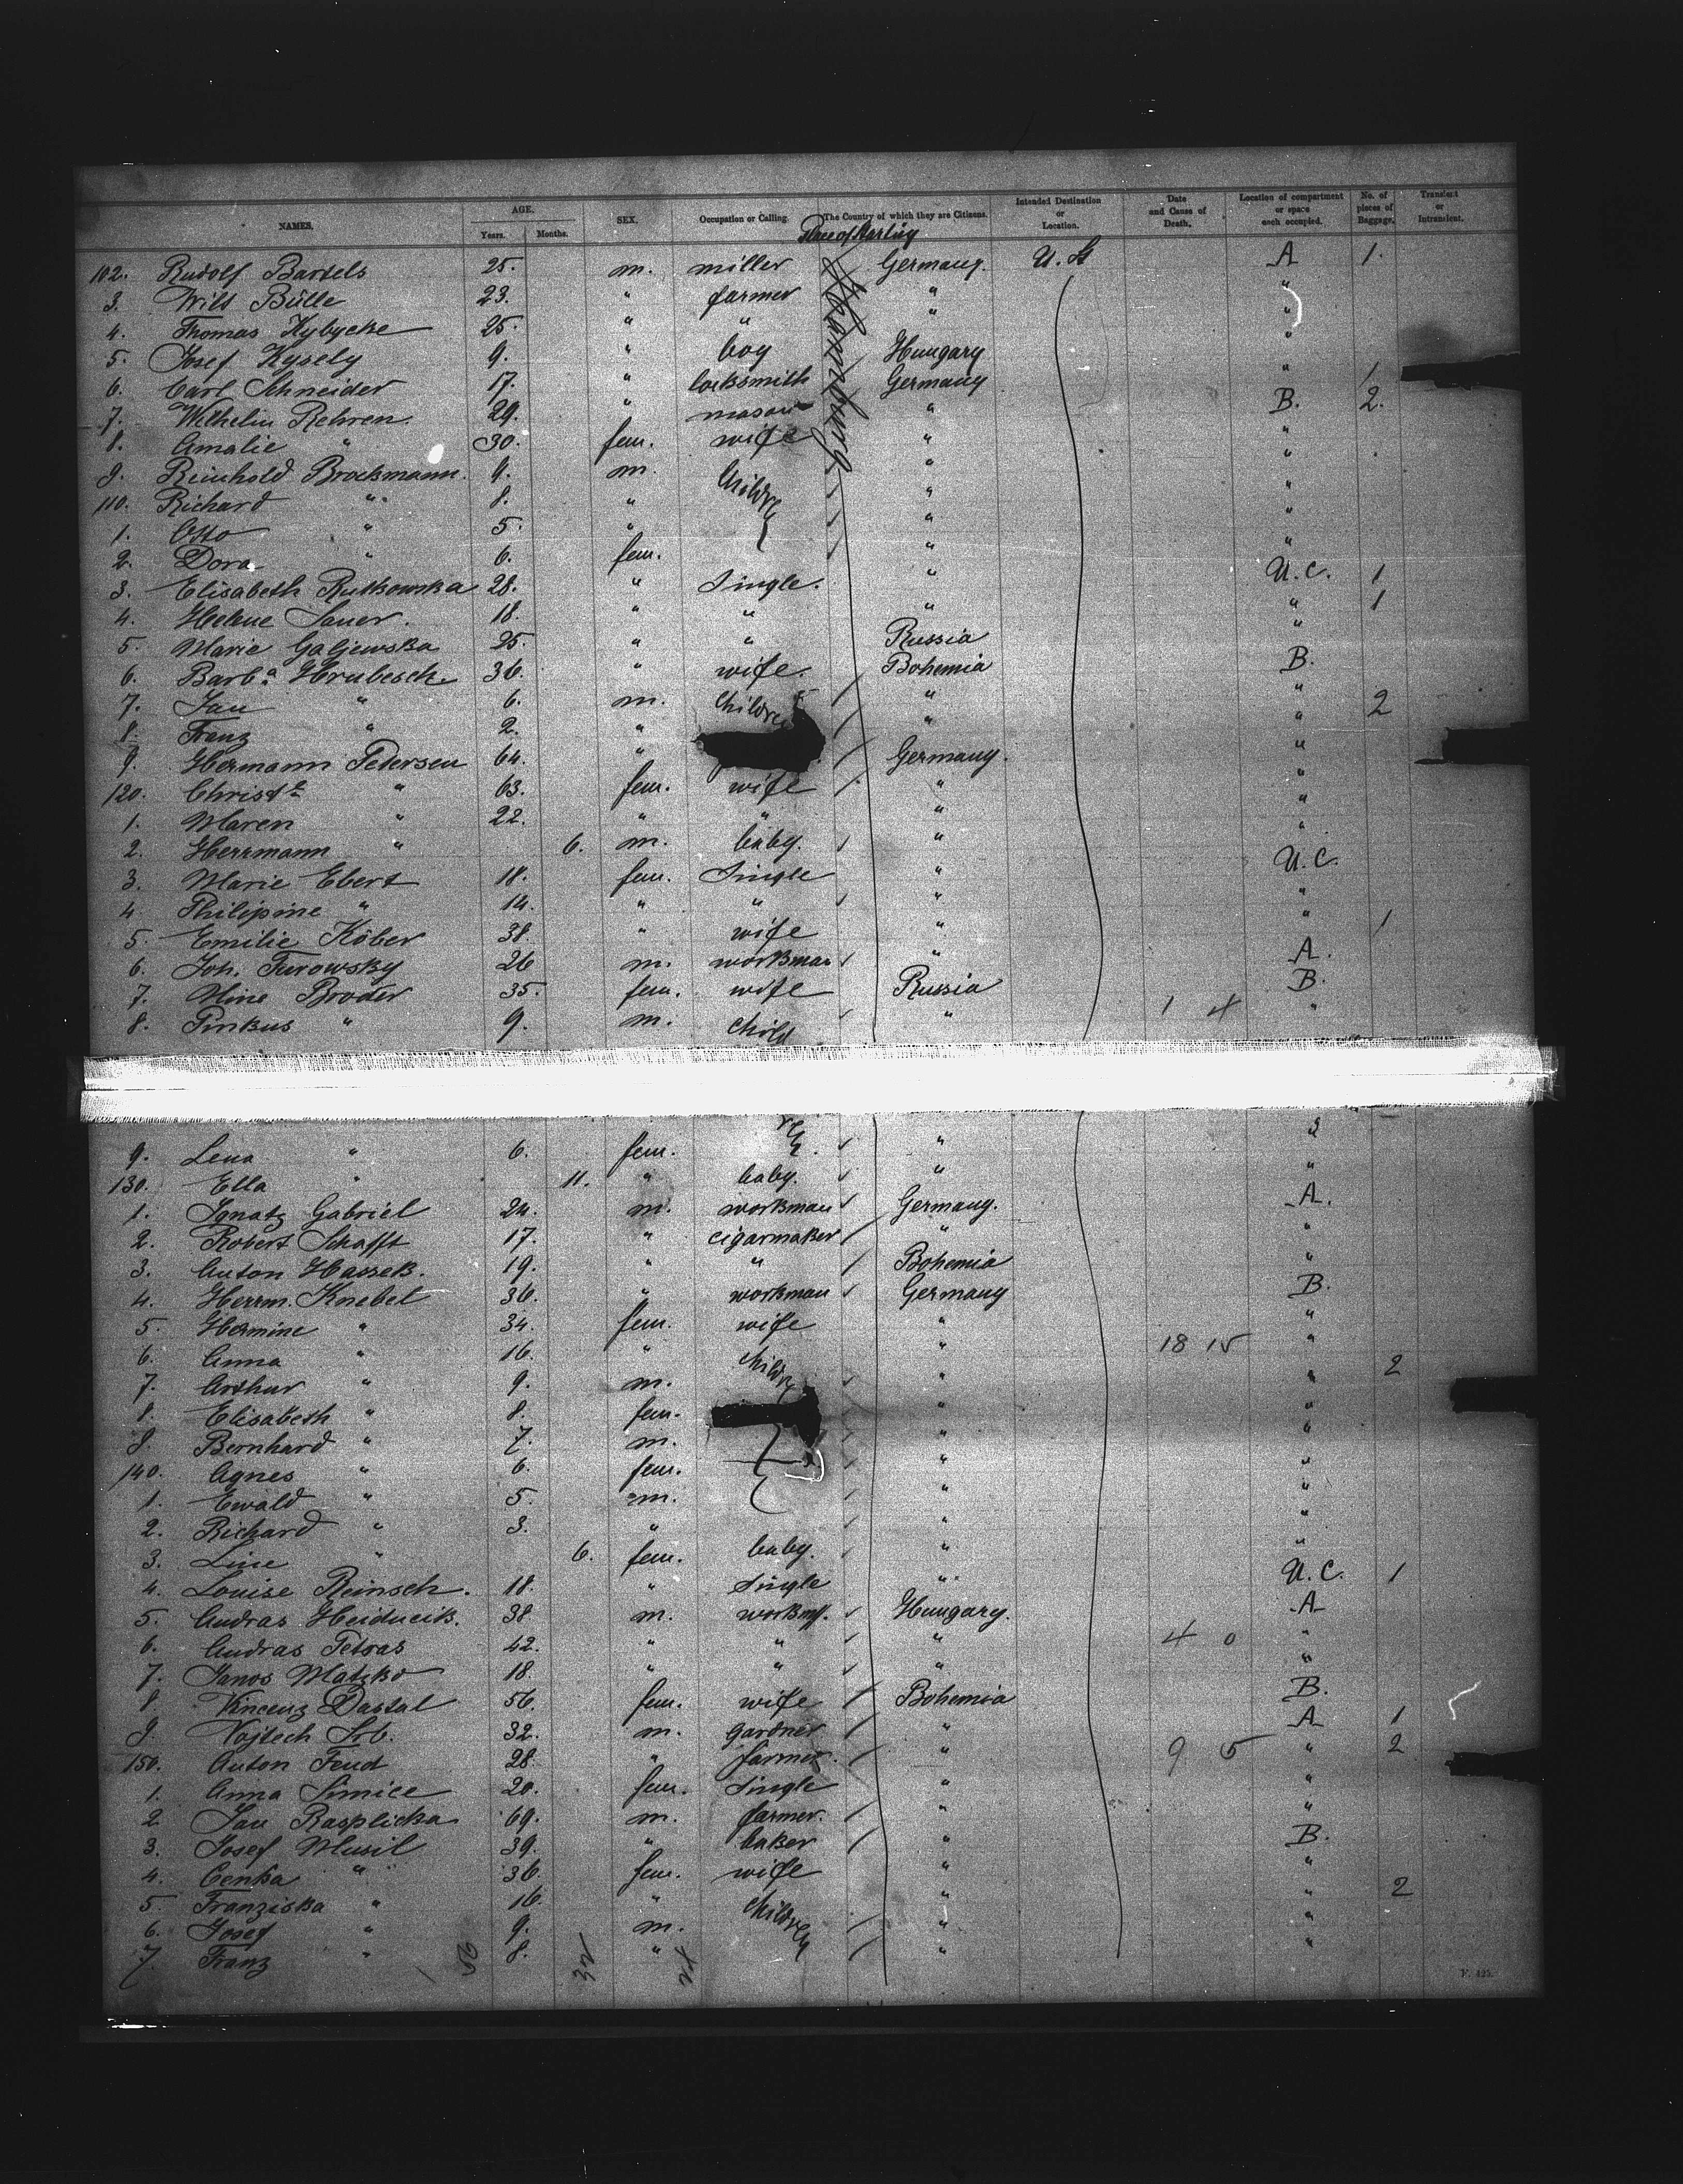 NAMES. AGE. Years. Months. SEX. Occupation or Calling. The Country of which they are Citizens. Intended Destination or Location. Date and Cause of Death. Location of compartment or space each occupied. No. of pieces of Baggage. Transient or Intransient.
Place of Starting
Hamburg
102. Rudolf Bartels 25. m. miller Germany. U.S. A 1.
3. Wilh Bülle 23. " farmer " "
4. Thomas Kybycke 25. " " "
5. Josef Kysely 9. " boy Hungary "
6. Carl Schneider 17. " locksmith Germany " 1
7. Wilhelm Rehren. 29. " mason " B. 2.
8. Amalie " 30. fem. wife " "
9. Reinhold Brockmann. 9. m. Children " "
110. Richard " 8. " " "
1. Otto " 5. " " "
2. Dora " 6. fem. " "
3. Elisabeth Rutkowska 28. " Single. " U.C. 1
4. Helene Sauer. 18. " " " " 1
5. Marie Galjewska 25. " " Russia "
6. Barb.a Hrubesch 36. " wife. Bohemia B.
7. Jan " 6. m. Children " " 2
8. Franz " 2. " " "
9. Hermann Petersen 64. " Germany. "
120. Christe " 63. fem. wife " "
1. Maren " 22. " " " "
2. Herrmann " 6. m. baby. " "
3. Marie Ebert 18. fem. Single " U.C.
4. Philipine " 14. " " " "
5. Emilie Köber 38. " wife " " 1
6. Joh. Turowsky 26 m. workman " A.
7. Mine Broder 35. fem. wife Russia B.
8. Pinkus " 9. m. Children " 1 4 "
9. Lena " 6. fem. " "
130. Ella " 11. " baby. " "
1. Ignatz Gabriel 24. m. workman Germany. A.
2. Robert Schafft 17. " cigarmaker " "
3. Anton Hassek. 19. " " Bohemia "
4. Herrm. Knebel 36. " workman Germany B.
5. Hermine " 34. fem. wife " "
6. Anna " 16. " Children " 18 15 "
7. Arthur " 9. m. " " 2
8. Elisabeth " 8. fem. " "
9. Bernhard " 7. m. " "
140. Agnes " 6. fem. " "
1. Ewald " 5. m. " "
2. Richard " 3. " " "
3. Line " 6. fem. baby. " "
4. Louise Reinsch. 18. " Single " U.C. 1
5. Andras Heiducik. 38 m. workm. Hungary. A
6. Andras Petras 42. " " " 4 0 "
7. Janos Matzko 18. " " " "
8. Vincenz Dastal 56. fem. wife Bohemia B.
9. Vojtech Srb. 32. m. gardner " A 1
150. Anton Feud 28. " farmer. " 9 5 " 2
1. Anna Simice 20. fem. Single " "
2 Jan Rasplicka 69. m. farmer. " "
3. Josef Musil 39. " baker " B.
4. Cenka " 36 fem. wife " "
5. Franziska " 16. " Children " " 2
6. Josef " 9. m. " "
7. Franz " 8. " " "
F. 425.